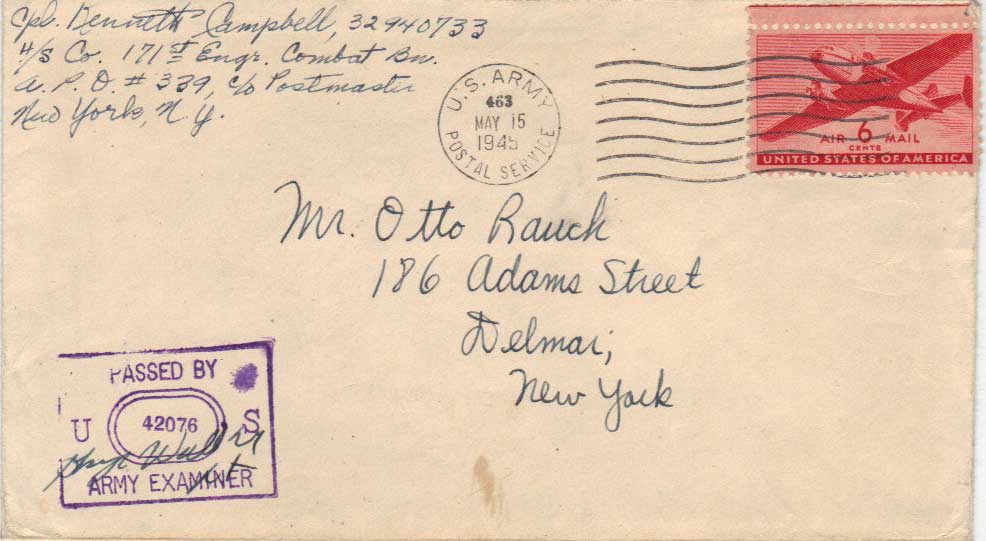 Cpl. Kenneth Campbell, 32940733
H/S Co. 171st Engr. Combat Bn.
A. P. O. # 339, c/o Postmaster
New York, N. Y.
U. S. ARMY
463
MAY 15
1945
POSTAL SERVICE
AIR 6 MAIL
CENTS
UNITED STATES OF AMERICA
Mr. Otto Rauch
186 Adams Street
Delmar,
New York
PASSED BY
U 42076 S
ARMY EXAMINER